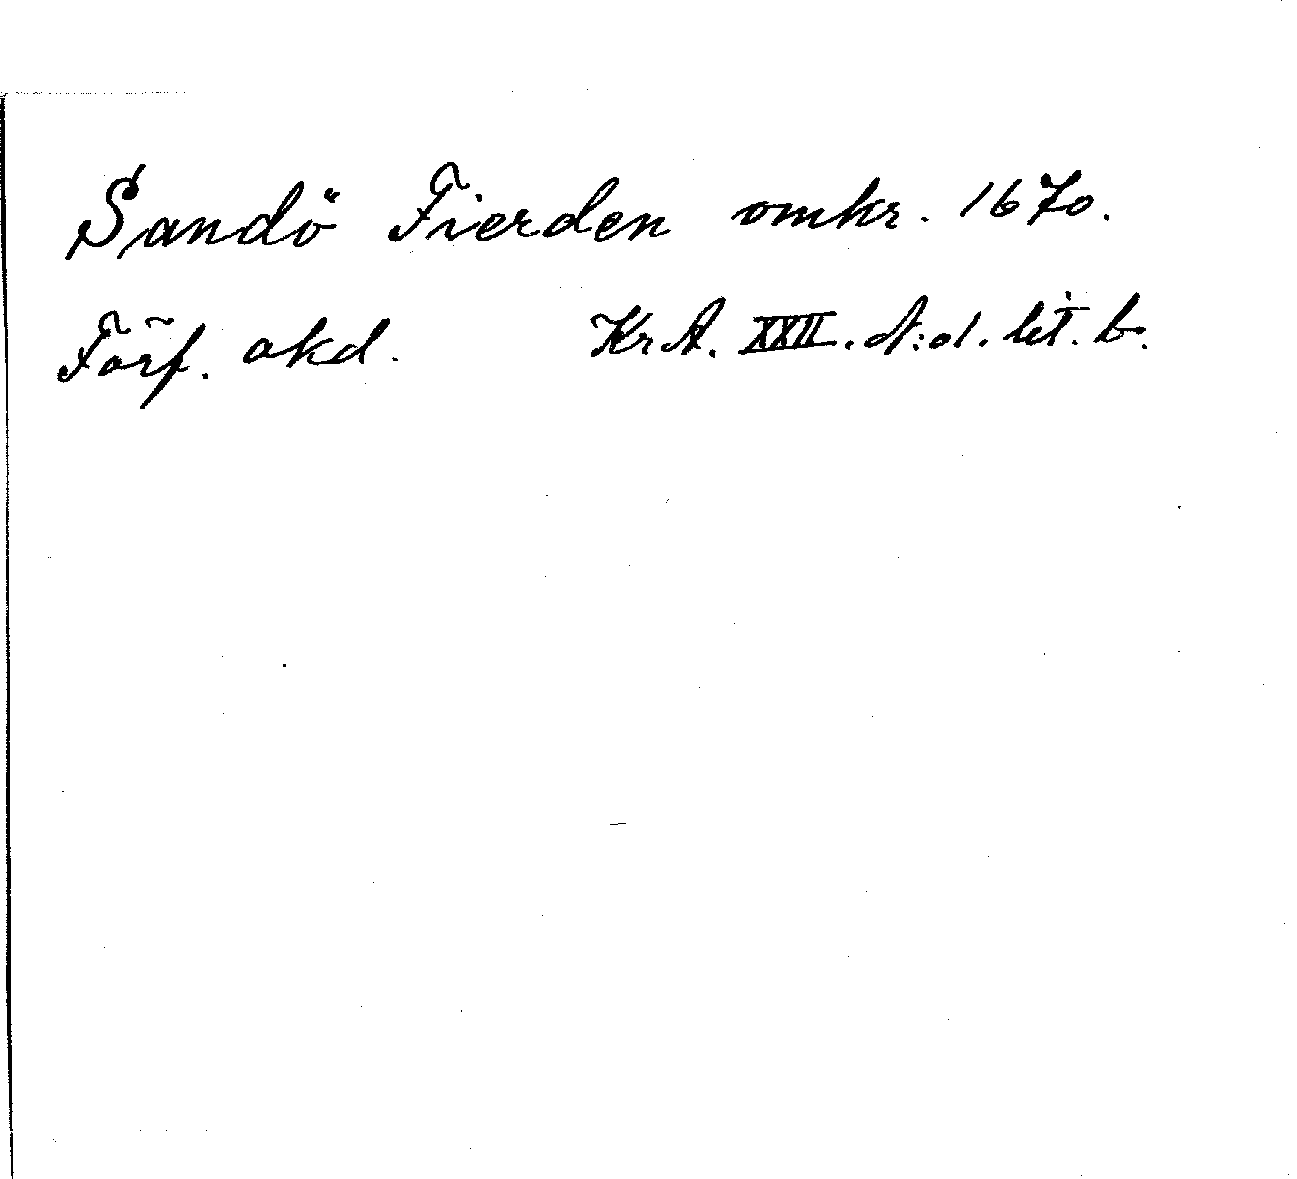 Sandö Fierden omkr. 1670.
Förf. okd. Kr A. XXII. A:d. lit. b.